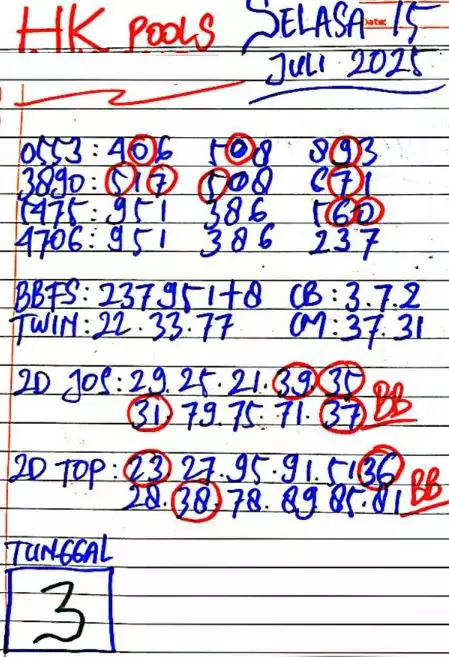 HK POOLS SELASA 15
JULI 2025
0553 : 406 508 893
3890 : 517 508 671
5475 : 951 386 560
4706 : 951 386 237
BBFS : 237951+8 CB : 3.7.2
TWIN : 22.33.77 CM : 37.31
2D JOS : 29.25.21.39.35
31 79.75.71.37 BB
2D TOP : 23 27.95.91.51 36
28.38.78.89.85.81 BB
TUNGGAL
3